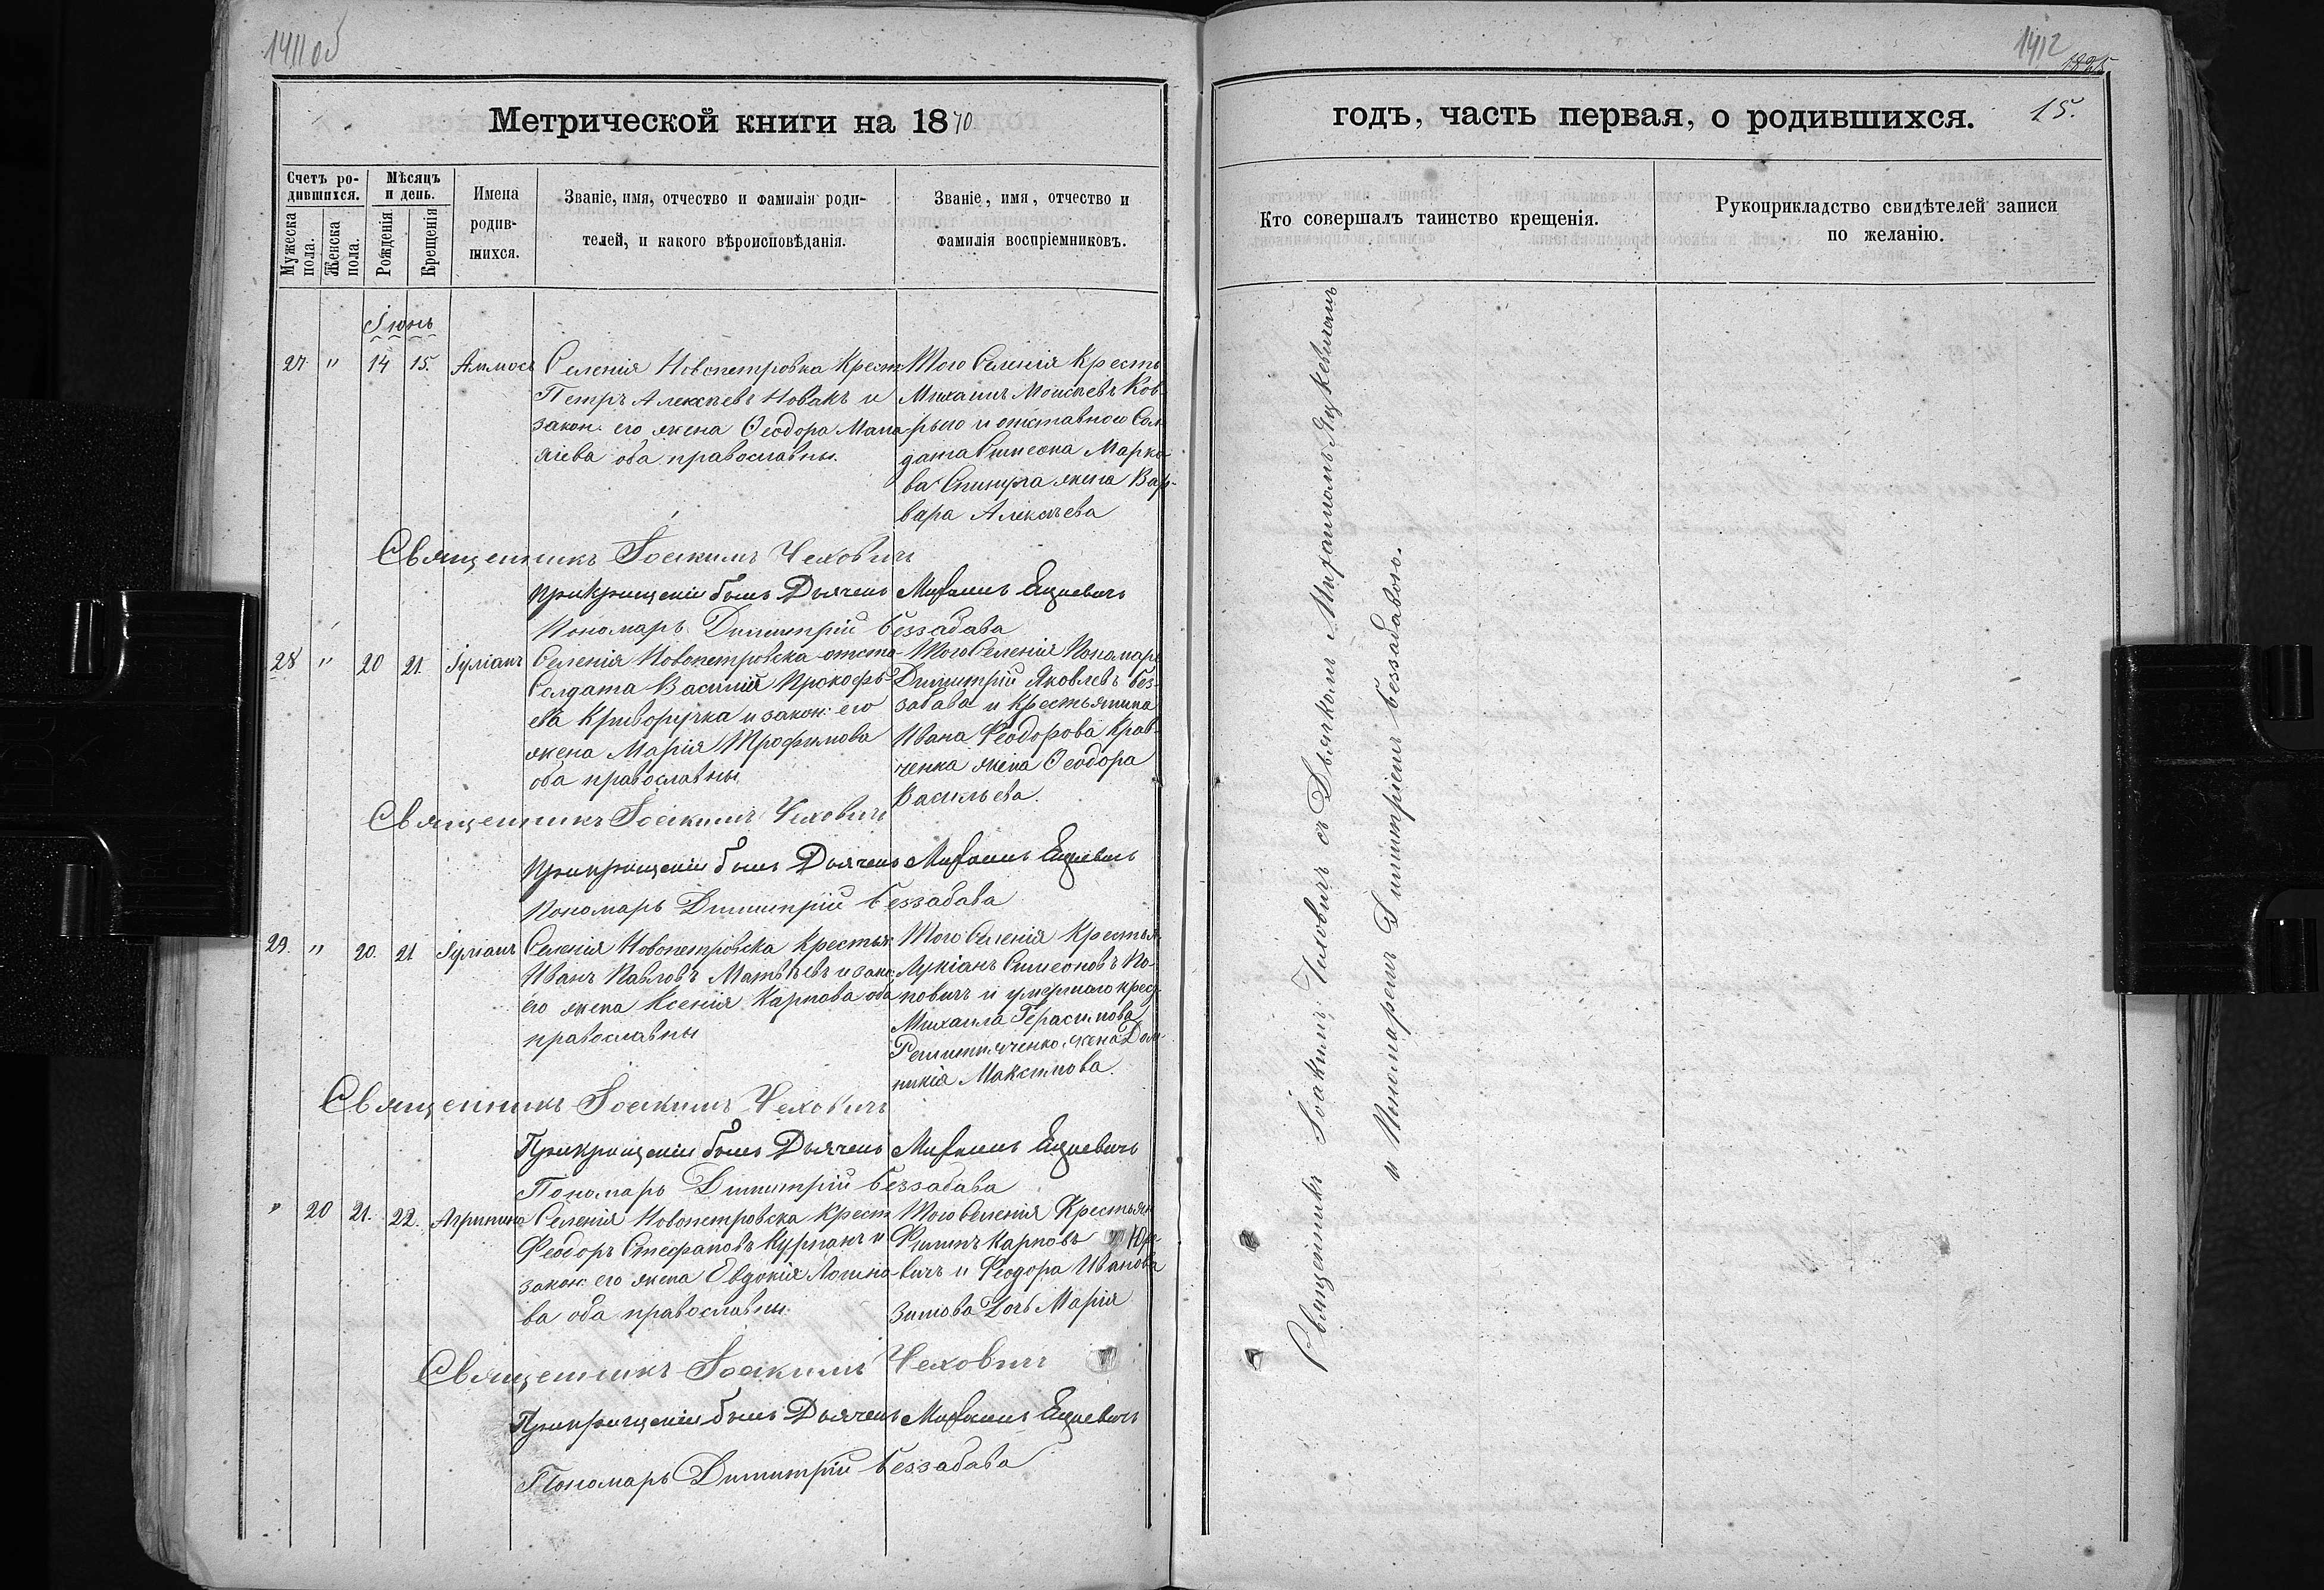 1411 об
Метрической книги на 1870
Счетъ ро-
дившихся.
Мѣсяцъ
и день.
Мужеска
пола.
Женска
пола.
Рожденія
Крещенія
Имена
родив-
шихся.
Званіе, имя, отчество и фамилія роди-
телей, и какого вѣроисповѣданія.
Званіе, имя, отчество и
фамилія воспріемниковъ.
Іюнь
27. " 14 15. Аммосъ
Селенія Новопетровка Крест
Петръ Алексѣевъ Новакъ и
закон. его жена Ѳеодора
оба православны.
Того Селенія Кресть
Михаилъ Моисѣевъ Ков-
и отставного Сол
дата Симеона Марко-
ва жена Вар-
вара Алексѣева
Священникъ Іоакимъ Чеховичъ
При крещеніи былъ Дьячекъ Михаилъ Яцкевичъ
Пономарь Димитрій Беззабава
28 " 20 21. Іуліанъ
Селенія Новопетровска отста
Солдата Василій Прокофь-
ева Криворучка и закон: его
жена Марія Трофимова
оба православны
Того Селенія Пономарь
Димитрій Яковлевъ Без-
забава и Крестьянина
Ивана Феодорова Крав-
ченка жена Ѳеодора
Васильева.
Священникъ Іоакимъ Чеховичъ
При крещеніи былъ Дьячекъ Михаилъ Яцкевичъ
Пономарь Димитрій Беззабава
29. " 20. 21 Іуліанъ
Селенія Новопетровска Крестьян
Иванъ Павловъ Матвѣевъ и закон
его жена Ксенія Карпова оба
православны
Того Селенія Крестья
Лукіанъ Симеоновъ По-
повичъ и умершаго крес
Михаила Герасимова
жена Дом-
никія Максимова.
Священникъ Іоакимъ Чеховичъ
При крещеніи былъ Дьячекъ Михаилъ Яцкевичъ
Пономарь Димитрій Беззабава
" 20 21. 22. Агрипина
Селенія Новопетровска Крест
Феодоръ Стефановъ Курганъ и
закон: его жена Евдокія Логино-
ва оба православны.
Того Селенія Крестьян
Филипъ Карповъ Юр-
вичъ и Феодора Иванова
Зимова Дочь Марія
Священникъ Іоакимъ Чеховичъ
При крещеніи былъ Дьячекъ Михаилъ Яцкевичъ
Пономарь Димитрій Беззабава
1412
годъ, часть первая, о родившихся. 15.
Кто совершалъ таинство крещенія.
Рукоприкладство свидѣтелей записи
по желанію.
Священникъ Іоакимъ Чеховичъ съ Дьячкомъ Михаиломъ Яцкевичемъ
и Пономаремъ Димитріемъ Беззабавою.